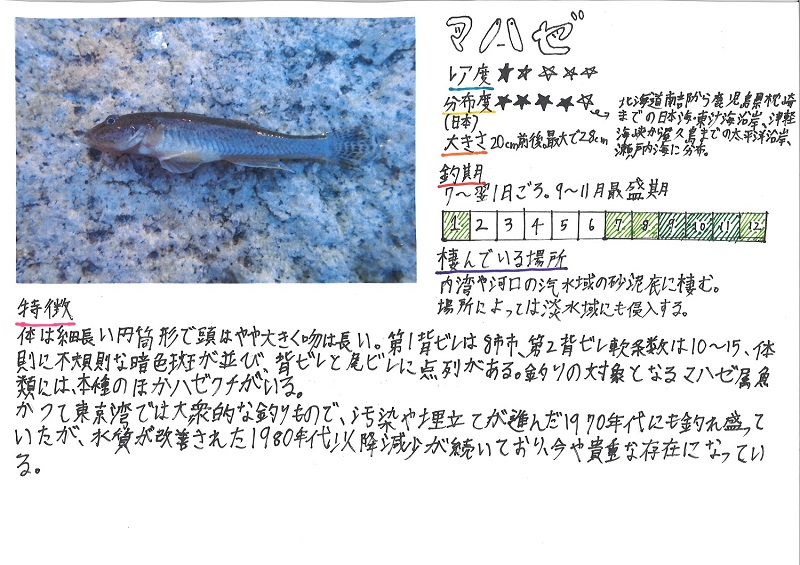 マハゼ
レア度 ★★☆☆☆
分布度 ★★★★☆
(日本)
北海道南部から鹿児島県枕崎
までの日本海・東シナ海沿岸、津軽
海峡から屋久島までの太平洋沿岸、
瀬戸内海に分布。
大きさ 20cm前後、最大で28cm
釣期
7〜翌1日ごろ。9〜11月最盛期
1 2 3 4 5 6 7 8 9 10 11 12
棲んでいる場所
内湾や河口の汽水域の砂泥底に棲む。
場所によっては淡水域にも侵入する。
特徴
体は細長い円筒形で頭はやや大きく吻は長い。第1背ビレは8布市、第2背ビレ軟条数は10〜15、体
則に不規則な暗色斑が並び、背ビレと尾ビレに点列がある。釣りの対象となるマハゼ属魚
類には、本種のほかハゼクチがいる。
かつて東京湾では大衆的な釣りもので、汚染や埋立てが進んだ1970年代にも釣れ盛って
いたが、水質が改善された1980年代以降減少が続いており、今や貴重な存在になってい
る。